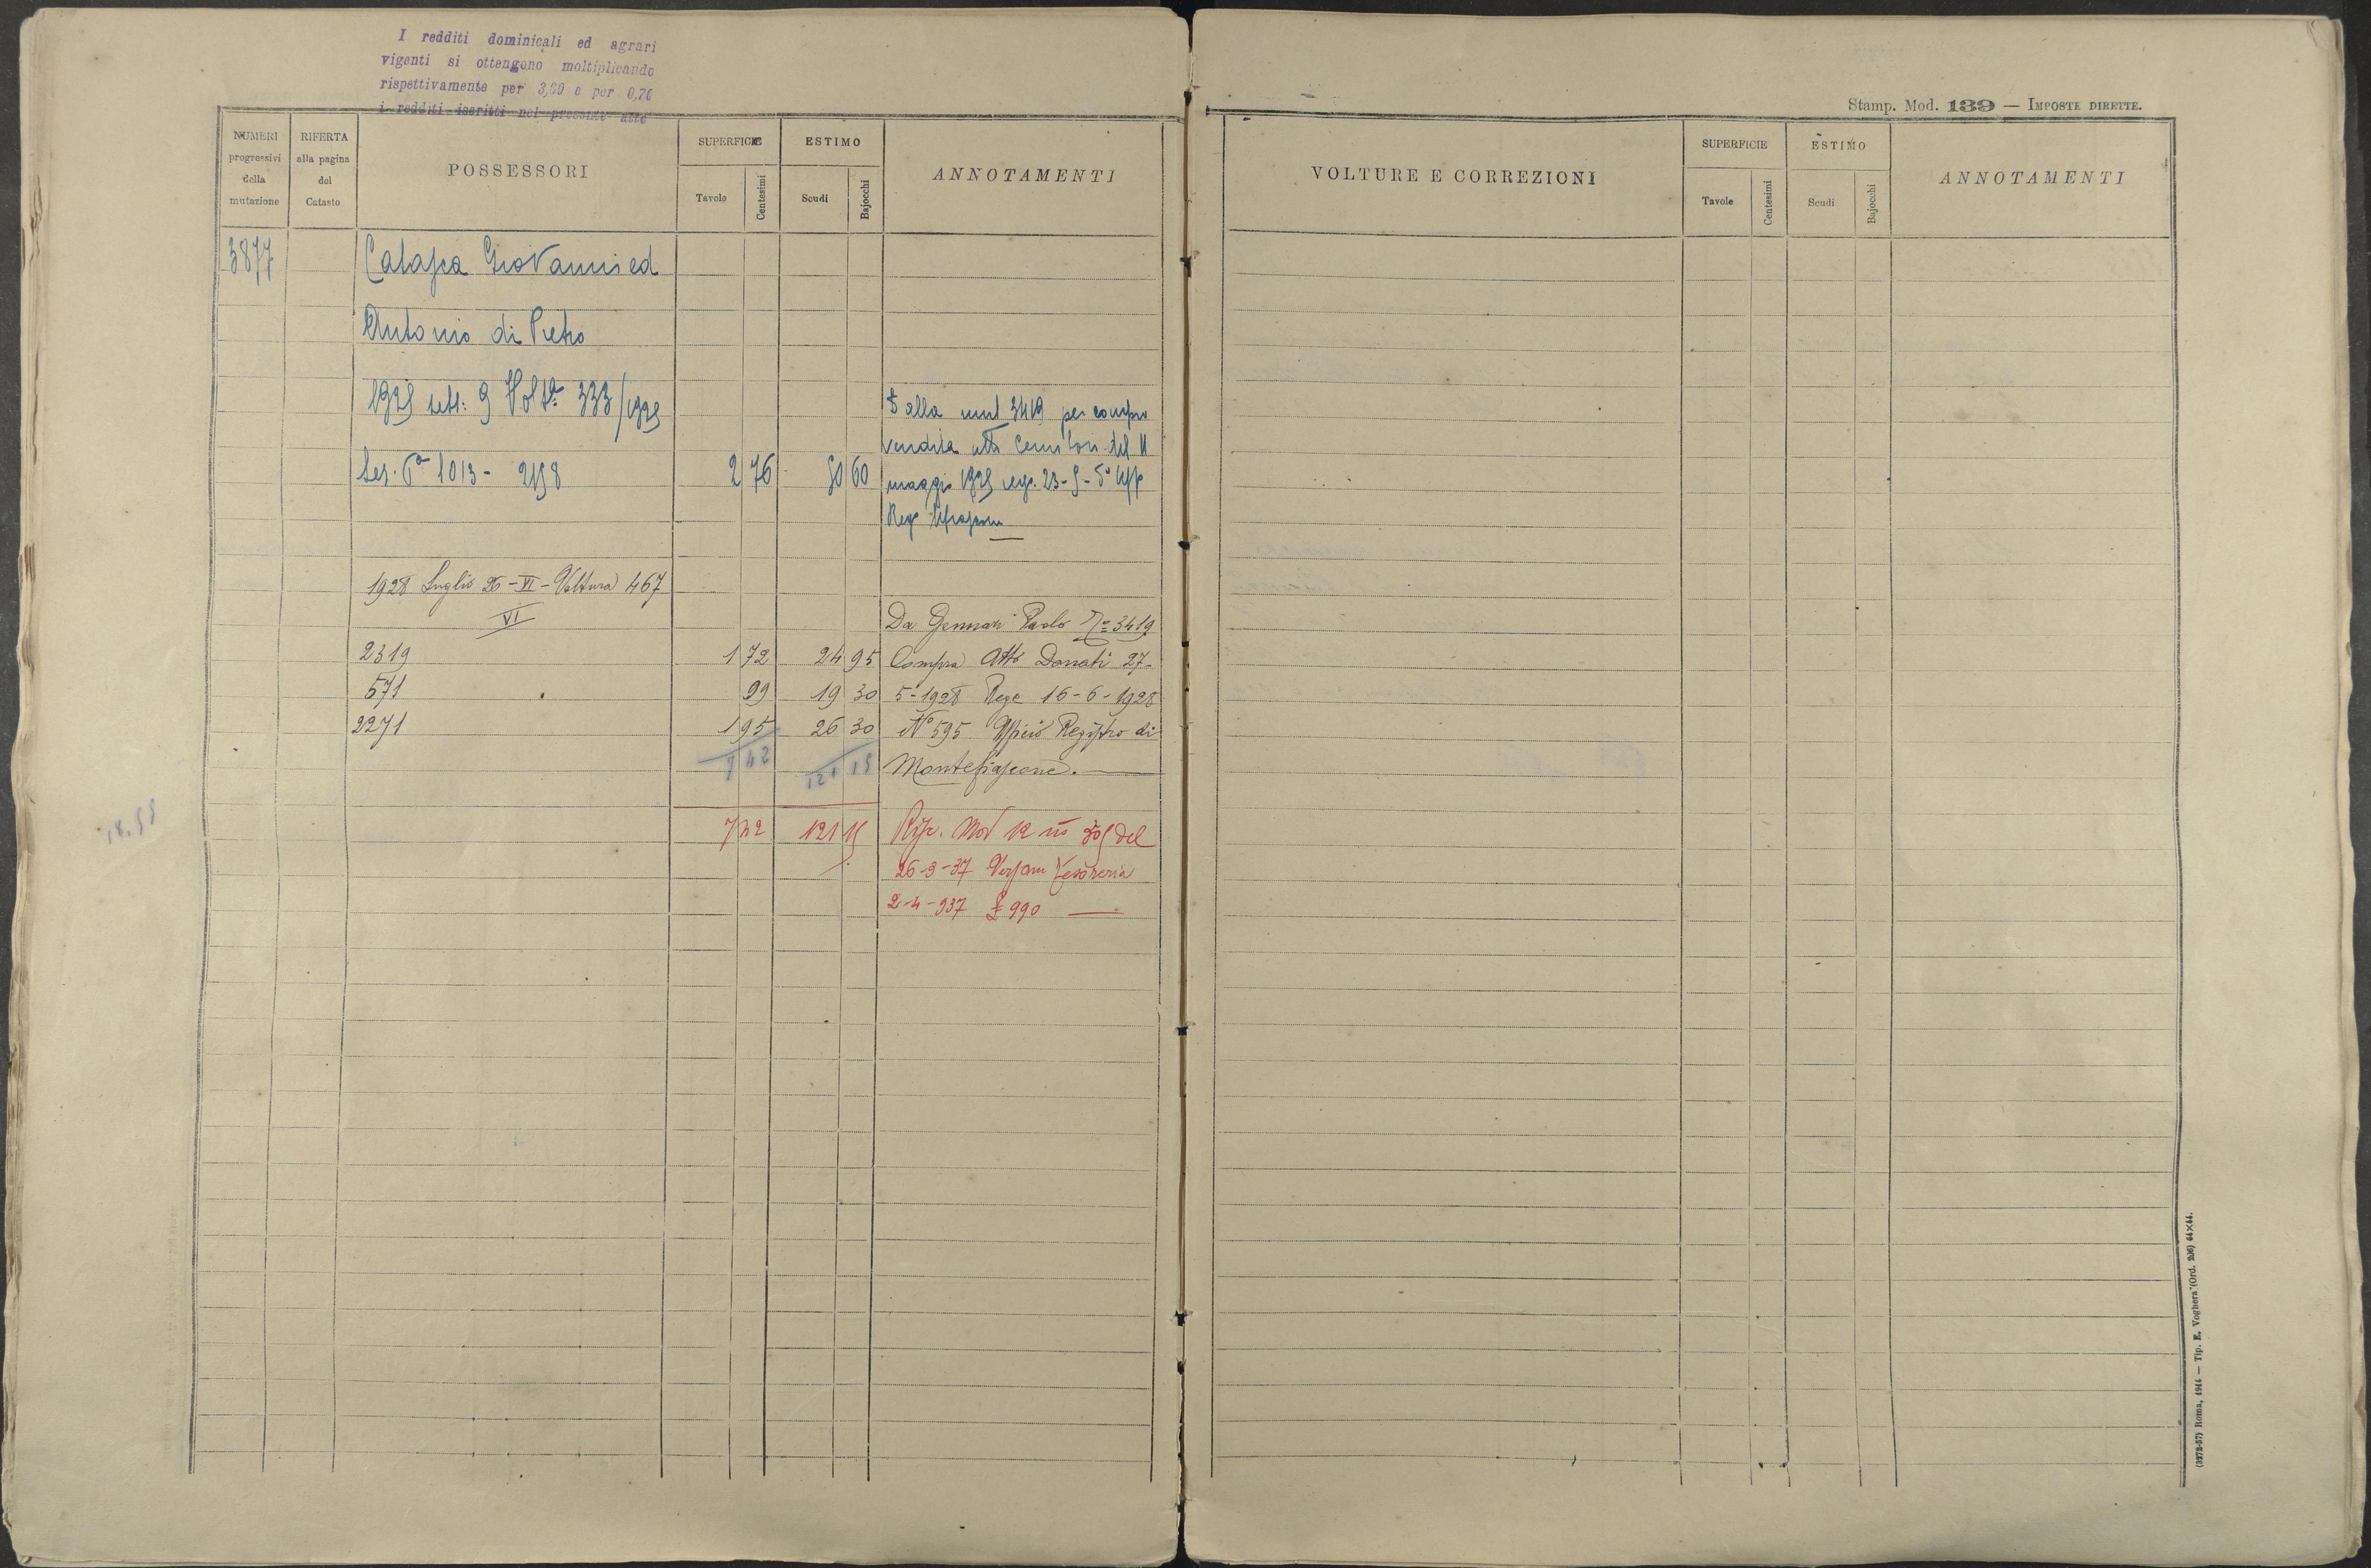 I redditi dominicali ed agrari
vigenti si ottengono moltiplicando
rispettivamente per 3,60 e per 0,76
i redditi iscritti nel presente atto
NUMERI progressivi della mutazione
RIFERTA alla pagina del Catasto
POSSESSORI
SUPERFICIE
Tavole
Centesimi
ESTIMO
Scudi
Bajocchi
ANNOTAMENTI
3877
Catasca Giovanni ed
Antonio di Pietro
1925 sett: 9 Volt.a 333/1925
Sez. 6a 1013 - 2158 2 76 50 60
alla mut 3419 per compra
vendita atto del 11
maggio 1925 reg. 23-5-
1928 Luglio 26 - VI - Voltura 467
VI
2319 1 72 24 95
571 99 19 30
2271 1 95 26 30
7 42 121 15
Da Gennari Paolo No 3419
Compra Atto Donati 27-
5-1928 Rege 16-6-1928
No 595 Ufficio Registro di
Montefiascone.
7 42 121 15
Rip. Mod 12 no 305 del
26-3-37 Versam Tesoreria
2-4-937 £ 990
18.55
Stamp. Mod. 139 — IMPOSTE DIRETTE.
VOLTURE E CORREZIONI
SUPERFICIE
Tavole
Centesimi
ESTIMO
Scudi
Bajocchi
ANNOTAMENTI
(3272-57) Roma, 1914 — Tip. E. Voghera (Ord. 206) 64×44.